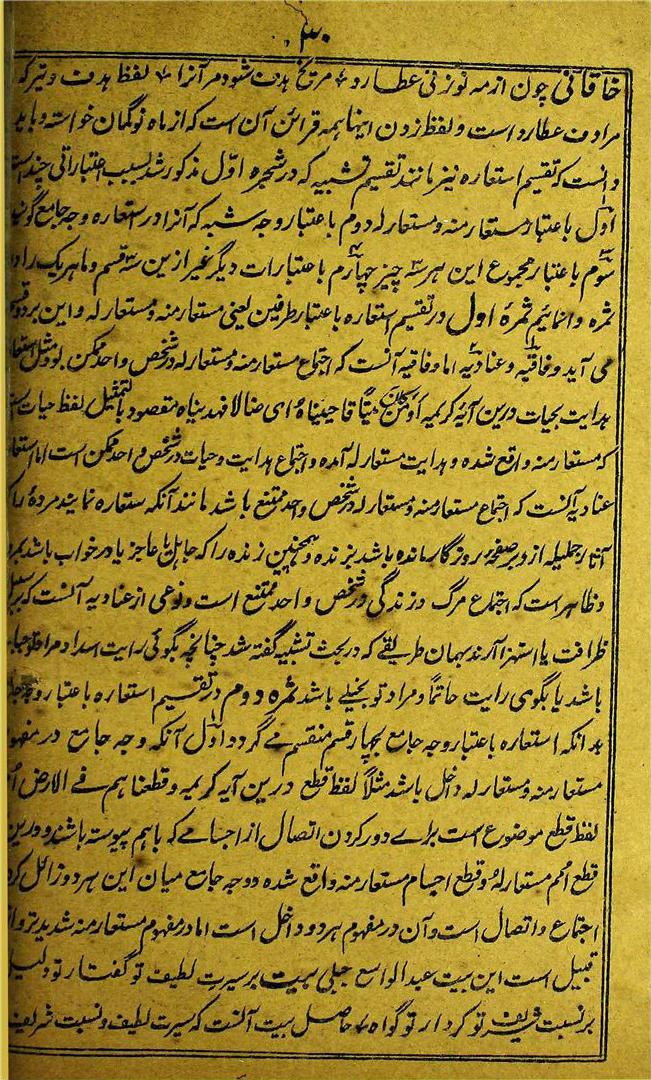 ۳۰
خاقانی چون از مه نو زنی عطارد ؎ مریخ هدف شود مر آنرا ؎ لفظ هدف و تیر که
مرادف عطارد است و لفظ زدن اینهاهمه قرائن آن است که از ماه نو کمان خواسته و باید
دانست که تقسیم استعاره نیز مانند تقسیم تشبیه که در شجره اوّل مذکور شد بسبب اعتباراتی چند است
اوّل باعتبار مستعار منه و مستعار له دوم باعتبار وجه شبه که آنرا در استعاره وجه جامع گویند
سوم باعتبار مجموع این هر سه چیز چهارم باعتبارات دیگر غیر ازین سه قسم و ما هر یک را در
ثمره وانمائیم ثمرۀ اول در تقسیم استعاره باعتبار طرفین یعنی مستعار منه و مستعار له و این بر دو قسم
می آید وفاقیه و عنادیه اما وفاقیه آنست که اجتماع مستعار منه و مستعار له در شخص واحد ممکن بود مثل استعاره
هدایت بحیات درین آیۀ کریمه اَوَمَنْ کَانَ مَیْتًا فَاحییناهُ ای ضالا فهدیناه مقصود بالتمثیل لفظ حیات است
که مستعار منه واقع شده و هدایت مستعار له آمده و اجتماع هدایت و حیات در شخص واحد ممکن است اما استعاره
عنادیه آنست که اجتماع مستعار منه و مستعار له در شخص واحد ممتنع باشد مانند آنکه ستعاره نمایند مردۀ را که
آثار جلیله از و بر صفحه روزگار مانده باشد بزنده و همچنین زنده را که جاهل یا عاجز یا در خواب باشد بمرده
و ظاهر است که اجتماع مرگ و زندگی در شخص واحد ممتنع است و نوعی از عنادیه آنست که بر سبیل
ظرافت یا استهزا آرند بهمان طریقے که در بحث تشبیه گفته شد چنانچه بگوئی رایت اسدا و مراد تو جبان
باشد یا بگوی رایت حاتماً و مراد تو بخیلے باشد ثمره دوم در تقسیم استعاره باعتبار وجه جامع
بدانکه استعاره باعتبار وجه جامع بچهار قسم منقسم مے گردد اوّل آنکه وجه جامع در مفهوم
مستعار منه و مستعار له داخل باشد مثلاً لفظ قطع درین آیه کریمه و قطعناهم فے الارض
لفظ قطع موضوع است برای دور کردن اتصال از اجسامے که باهم پیوسته باشند و درین
قطع امم مستعار له و قطع اجسام مستعار منه واقع شده و وجه جامع میان این هر دو زائل کردن
اجتماع و اتصال است و آن در مفهوم هر دو داخل است اما در مفهوم مستعار منه شدیدتر و
قبیل است این بیت عبد الواسع جبلی بیت بر سیرت لطیف تو گفتار تو دلیل
بر نسبت شریف تو کردار تو گواه ؎ حاصل بیت آنست که سیرت لطیف و نسبت شریف